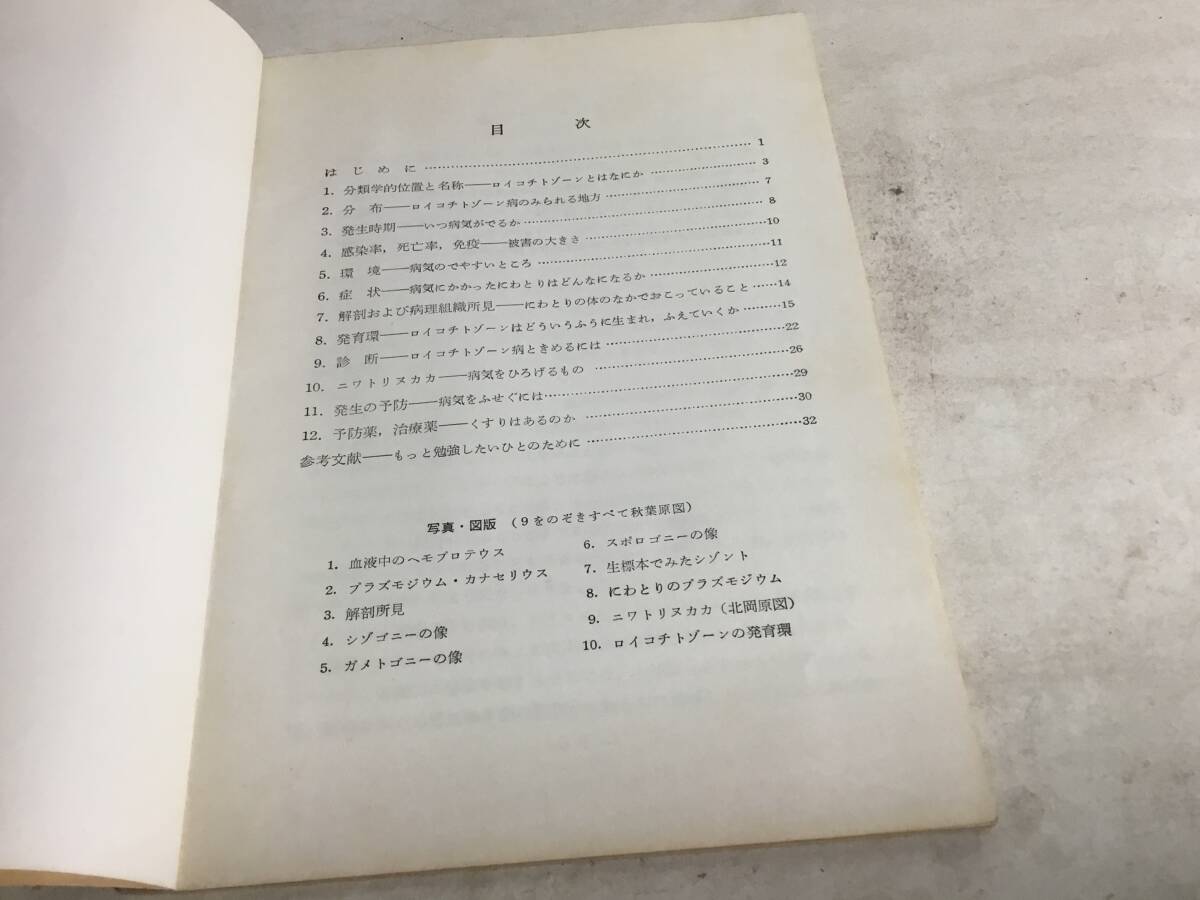 目 次
はじめに……1
1. 分類学的位置と名称――ロイコチトゾーンとはなにか……3
2. 分 布――ロイコチトゾーン病のみられる地方……7
3. 発生時期――いつ病気がでるか……8
4. 感染率，死亡率，免疫――被害の大きさ……10
5. 環 境――病気のでやすいところ……11
6. 症 状――病気にかかったにわとりはどんなになるか……12
7. 解剖および病理組織所見――にわとりの体のなかでおこっていること……14
8. 発育環――ロイコチトゾーンはどういうふうに生まれ，ふえていくか……15
9. 診 断――ロイコチトゾーン病ときめるには……22
10. ニワトリヌカカ――病気をひろげるもの……26
11. 発生の予防――病気をふせぐには……29
12. 予防薬，治療薬――くすりはあるのか……30
参考文献――もっと勉強したいひとのために……32
写真・図版 （9をのぞきすべて秋葉原図）
1. 血液中のヘモプロテウス
2. プラズモジウム・カナセリウス
3. 解剖所見
4. シゾゴニーの像
5. ガメトゴニーの像
6. スポロゴニーの像
7. 生標本でみたシゾント
8. にわとりのプラズモジウム
9. ニワトリヌカカ（北岡原図）
10. ロイコチトゾーンの発育環